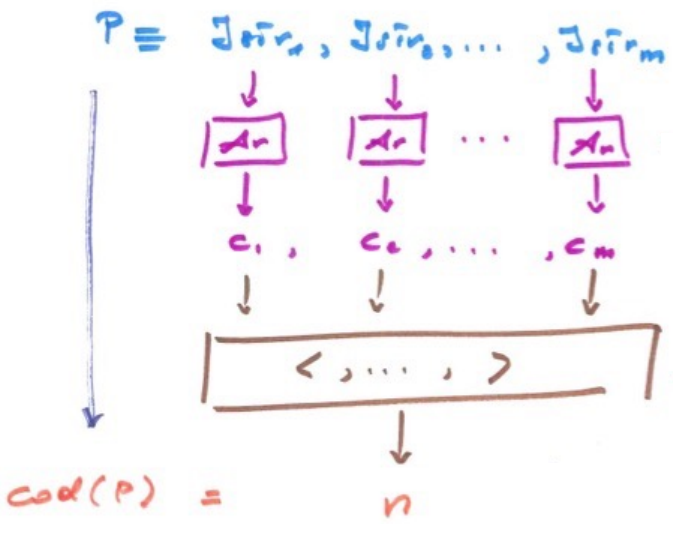 P ≡ Istr₁, Istr₂, ..., Istrₘ
Ar Ar ... Ar
c₁, c₂, ..., cₘ
<, ..., >
cod(P) = n